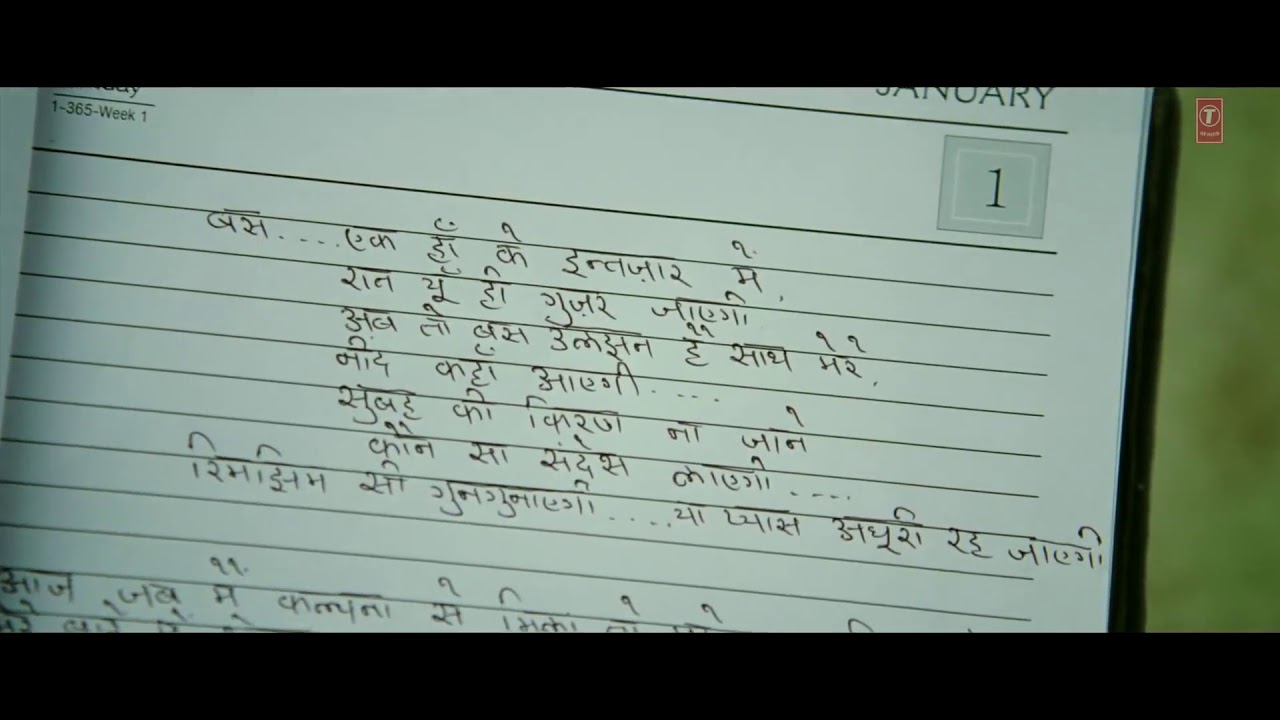 1-365-Week 1
JANUARY
1
बस....एक हाँ के इन्तज़ार में,
रात यूँ ही गुज़र जाएगी
अब तो बस उलझन है साथ मेरे,
नींद कहाँ आएगी....
सुबह की किरण ना जाने
कौन सा संदेश लाएगी....
रिमझिम सी गुनगुनाएगी....या प्यास अधूरी रह जाएगी
आज जब मैं कल्पना से मिला तो
T